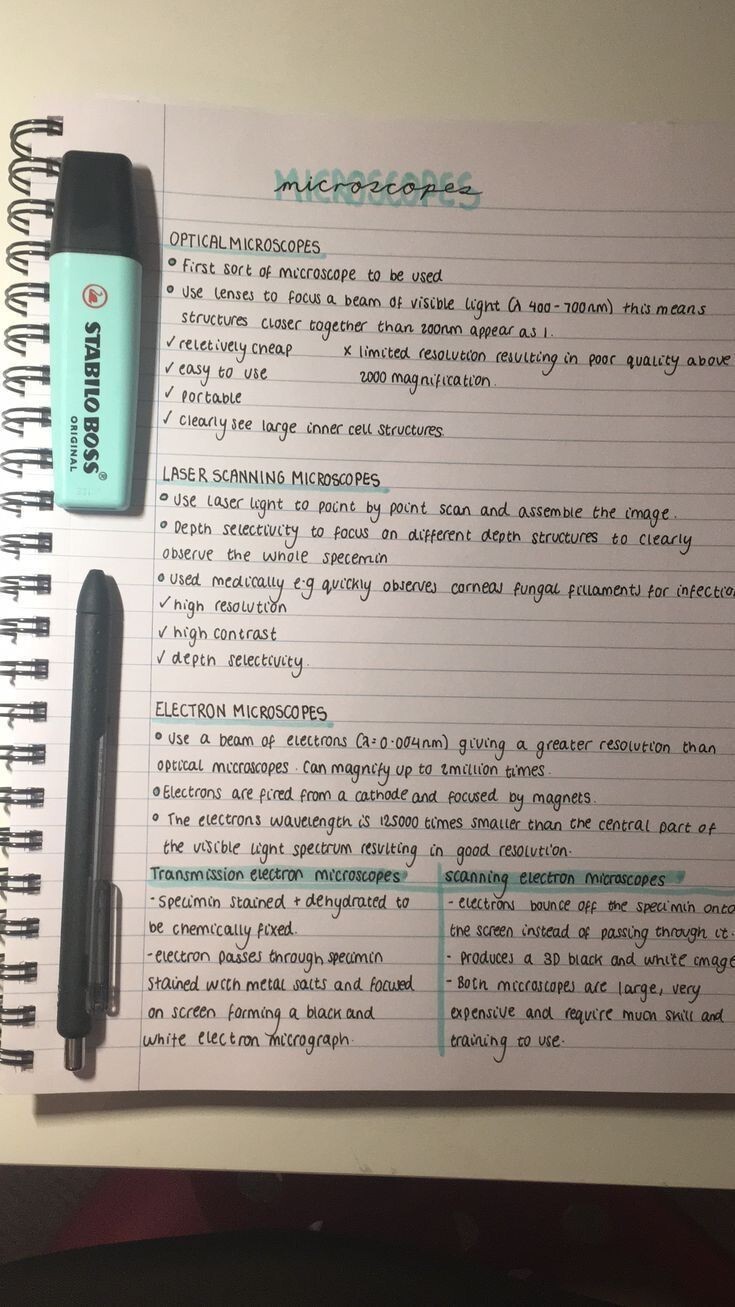 MICROSCOPES
microscopes
OPTICAL MICROSCOPES
• First sort of microscope to be used
• Use lenses to focus a beam of visible light (λ 400-700nm) this means
structures closer together than 200nm appear as 1.
✓ reletively cheap x limited resolution resulting in poor quality above
✓ easy to use 2000 magnification.
✓ portable
✓ clearly see large inner cell structures.
LASER SCANNING MICROSCOPES
• Use laser light to point by point scan and assemble the image.
• Depth selectivity to focus on different depth structures to clearly
observe the whole specemin
• Used medically e.g quickly observes corneas fungal fillaments for infectio
✓ high resolution
✓ high contrast
✓ depth selectivity.
ELECTRON MICROSCOPES
• Use a beam of electrons (λ=0.004nm) giving a greater resolution than
optical microscopes. Can magnify up to 2million times.
• Electrons are fired from a cathode and focused by magnets.
• The electrons wavelength is 125000 times smaller than the central part of
the visible light spectrum resulting in good resolution.
Transmission electron microscopes
- Specimin stained + dehydrated to
be chemically fixed.
- electron passes through specimin
stained with metal salts and focused
on screen forming a black and
white electron micrograph.
scanning electron microscopes
- electrons bounce off the specimin onto
the screen instead of passing through it.
- Produces a 3D black and white image
- Both microscopes are large, very
expensive and require much skill and
training to use.
STABILO BOSS®
ORIGINAL